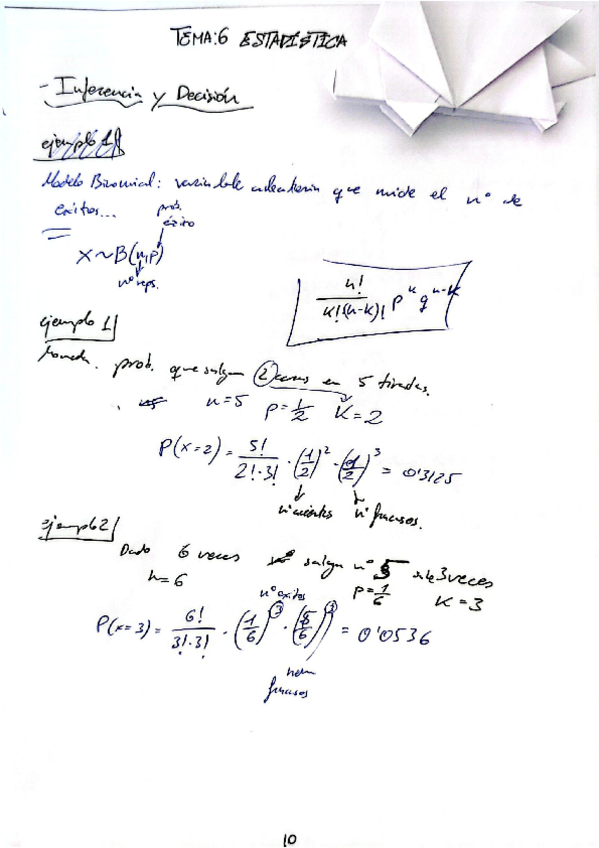 TEMA:6 ESTADÍSTICA
- Inferencia y Decisión
ejemplo 1
Modelo Binomial: variable aleatoria que mide el nº de
éxitos...
prob.
éxito
X ~ B(n,p)
nº reps.
n! / k!(n-k)! p^k q^n-k
ejemplo 1
Moneda. prob. que salgan 2 caras en 5 tiradas.
n=5 p=1/2 K=2
P(x=2) = 5! / 2!·3! · (1/2)^2 · (1/2)^3 = 0'3125
nº aciertos nº fracasos.
ejemplo 2
Dado 6 veces salga nº 5 3 veces
n=6 p=1/6 K=3
nº exitos
P(x=3) = 6! / 3!·3! · (1/6)^3 · (5/6)^3 = 0'0536
fracasos
10